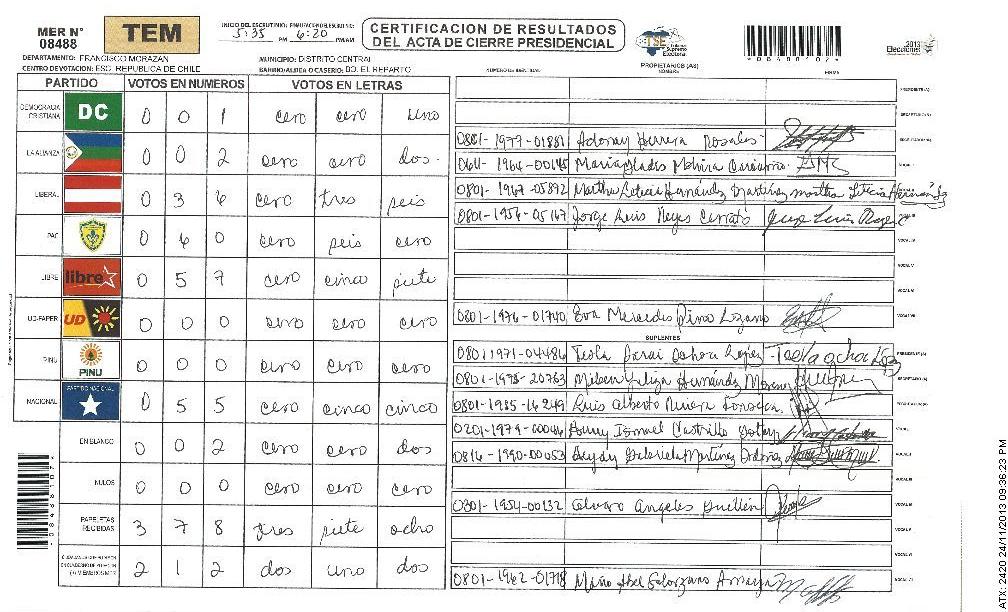 MER N° 08488
TEM
INICIO DEL ESCRUTINIO: 5:35 PM
6:20 PM/AM
CERTIFICACION DE RESULTADOS DEL ACTA DE CIERRE PRESIDENCIAL
TSE Tribunal Supremo Electoral
2013 Elecciones
DEPARTAMENTO: FRANCISCO MORAZAN
MUNICIPIO: DISTRITO CENTRAL
CENTRO DE VOTACION: ESC. REPUBLICA DE CHILE
BARRIO/ALDEA O CASERIO: BO. EL REPARTO
PROPIETARIOS (AS)
NOMBRE
FIRMA
PARTIDO VOTOS EN NUMEROS VOTOS EN LETRAS
DEMOCRACIA CRISTIANA DC 0 0 1 cero cero uno
LA ALIANZA 0 0 2 cero cero dos
LIBERAL 0 3 6 cero tres seis
PAC 0 6 0 cero seis cero
LIBRE libre 0 5 7 cero cinco siete
UD-FAPER UD 0 0 0 cero cero cero
PINU PINU 0 0 0 cero cero cero
NACIONAL PARTIDO NACIONAL 0 5 5 cero cinco cinco
EN BLANCO 0 0 2 cero cero dos
NULOS 0 0 0 cero cero cero
PAPELETAS RECIBIDAS 3 7 8 tres siete ocho
2 1 2 dos uno dos
0801-1977-01881 Adonay Herrera Rosales
Maria Gladis
0801-1967-05892 Martha Leticia Hernández Martínez Martha Leticia Hernández
0801-1954-05167 Jorge Luis Reyes Cerrato
0801-1976-01740 Eva Mercedes Pino Lozano
SUPLENTES
0801 1971-04486
0801-1975-20763 Hernández
0801-1985-16249 Luis Alberto Rivera Fonseca
0201-1979-00046 Ismael Castrillo
0816-1990-00053 Gabriela Martinez
0801-1954-00132 Alvaro Angeles Guillén
0801-1962-01718 Mario Abel Solorzano Amaya
ATX-2420 24/11/2013 09:36:23 PM